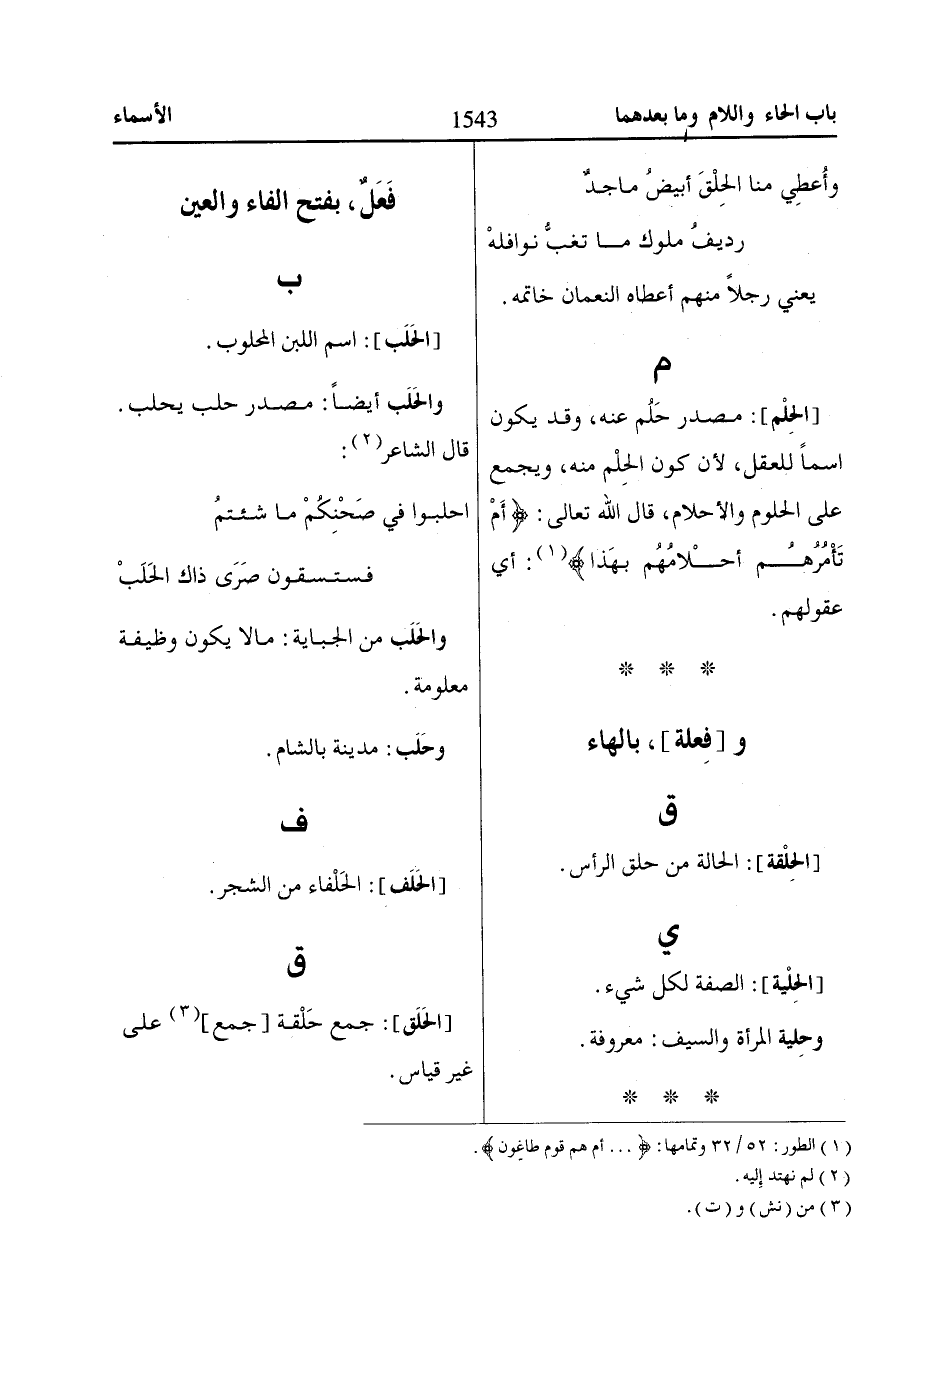 باب الحاء واللام وما بعدهما
1543
الأسماء
وأُعطِي منا الحِلْقَ أبيضُ ماجدٌ
رديفُ ملوك مـا تغبُّ نوافلهْ
يعني رجلاً منهم أعطاه النعمان خاتمه .
م
[الحِلْم]: مصدر حَلُم عنه، وقد يكون
اسماً للعقل، لأن كون الحِلْم منه، ويجمع
على الحلوم والأحلام، قال الله تعالى: ﴿أَمْ
تَأْمُرُهُم أحلامُهُم بِهَذا﴾(١): أي
عقولهم.
* * *
و [فِعلة]، بالهاء
ق
[الحِلْقة]: الحالة من حلق الرأس.
ي
[الحِلْية]: الصفة لكل شيء.
وحِلية المرأة والسيف: معروفة.
* * *
فَعَلٌ، بفتح الفاء والعين
ب
[الحَلَب]: اسم اللبن المحلوب.
والحَلَب أيضاً: مصدر حلب يحلب.
قال الشاعر(٢):
احلبوا في صَحْنِكُمْ ما شئتمُ
فستسقون صَرَى ذاك الحَلَبْ
والحَلَب من الجباية: مالا يكون وظيفة
معلومة.
وحَلَب: مدينة بالشام.
ف
[الحَلَف]: الحَلْفاء من الشجر.
ق
[الحَلَق]: جمع حَلْقة [جمع](٣) على
غير قياس.
(١) الطور: ٥٢/ ٣٢ وتمامها: ﴿... أم هم قوم طاغون﴾.
(٢) لم نهتد إليه.
(٣) من (نش) و (ت).